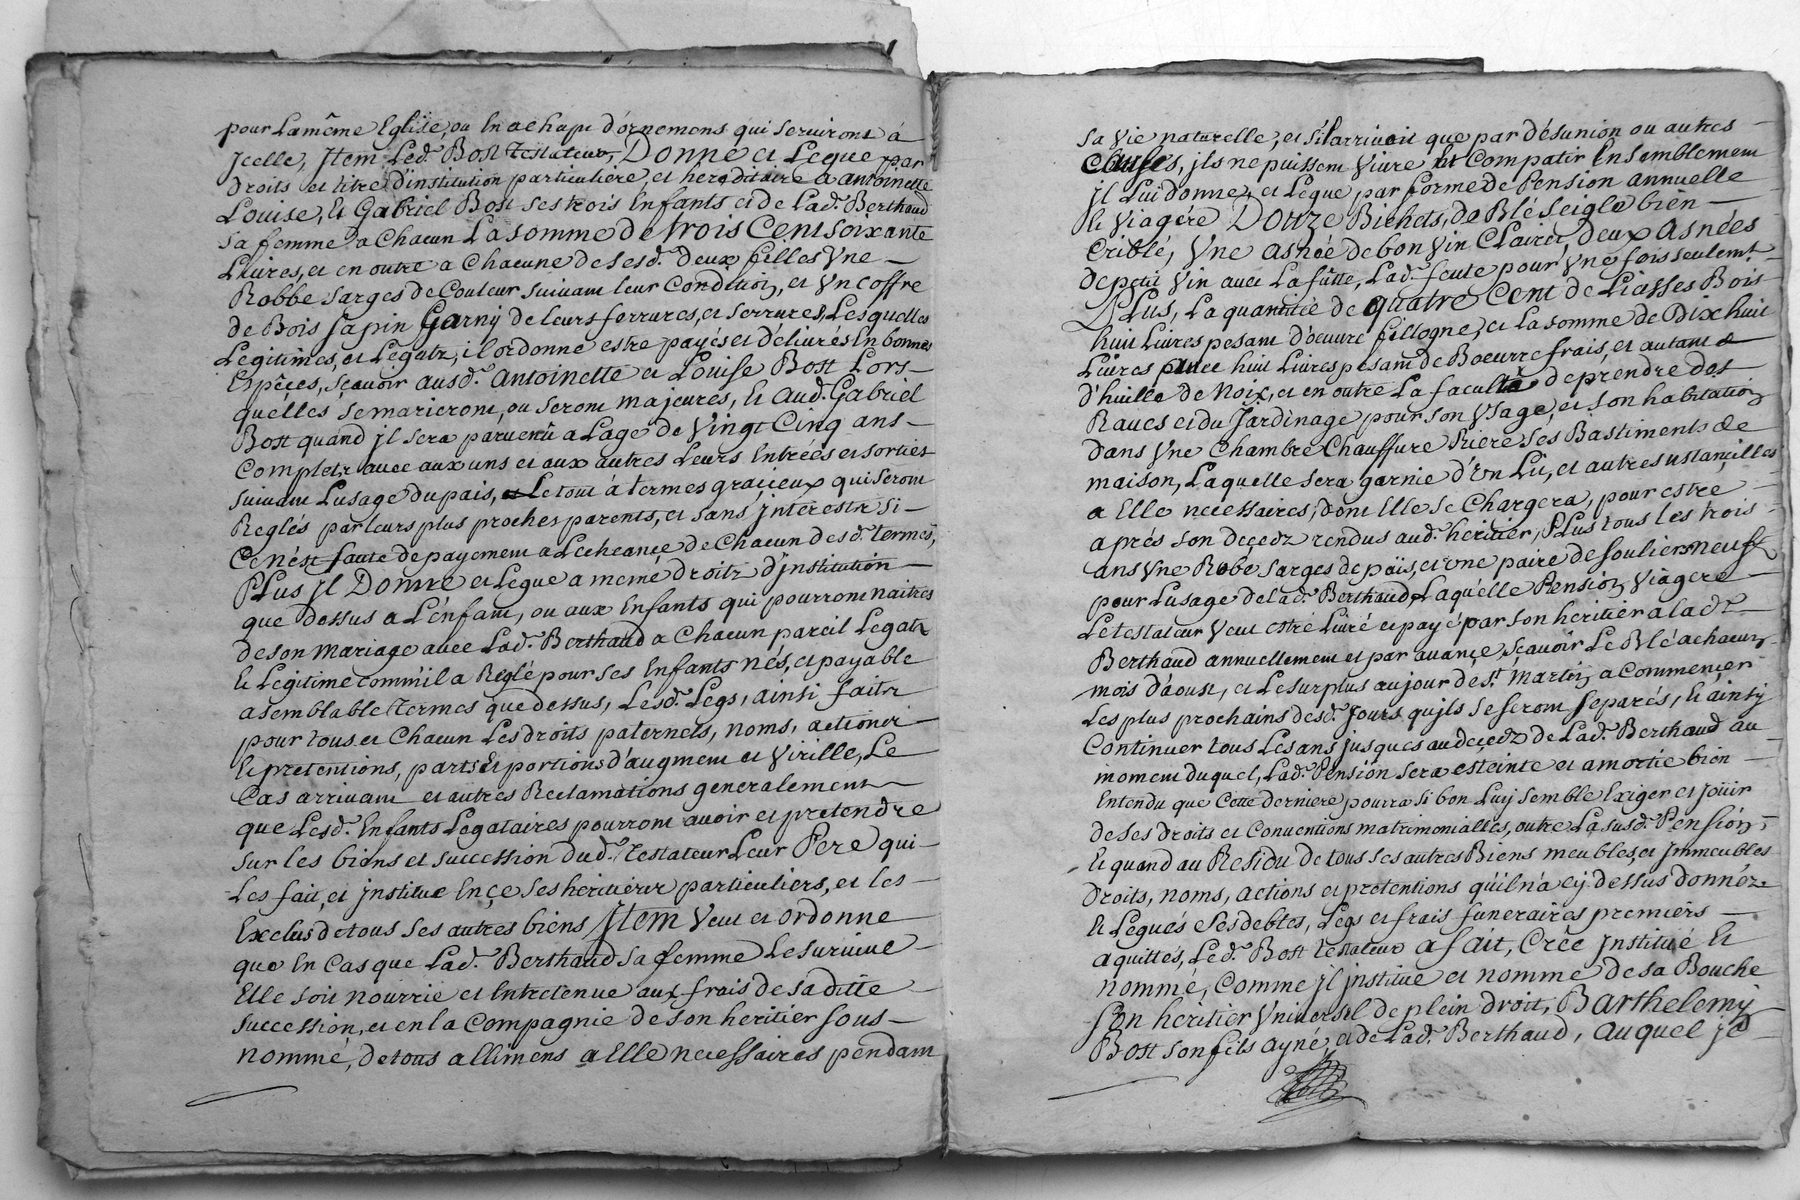 pour La même Eglise, ou En achapt d'ornemens qui serviront à
Jcelle, Jtem Led. Bost testateur, Donne et Legue par
droits et titre d'institution particuliere et hereditaire a Antoinette
Louise, Et Gabriel Bost ses trois Enfants et de Lad. Berthaud
sa femme a Chacun La somme de trois Cent soixante
Livres, et en outre a Chacune de ses d. deux filles Vne
Robbe sarges de Couleur suivant leur Condition, et Vn coffre
de Bois sapin Garny de leurs ferrures, et serrures, Lesquelles
Legitimes, et Legatz, il ordonne estre payés et délivrés En bonnes
Espêces, sçavoir ausd. Antoinette et Louise Bost Lors
quelles se marieront, ou seront majeures, Et Aud. Gabriel
Bost quand Jl sera parvenû a Lage de Vingt Cinq ans
Completz avec aux uns et aux autres Leurs Entrées et sorties
suivant Lusage du pais, Le tout à termes graçieux qui seront
Reglés par leurs plus proches parents, et sans jnterestz si
Ce nést faute de payement a Lecheançe de Chacun desd. termes,
PLus Jl Donne et Legue a meme droitz d'jnstitution
que dessus a L'énfant, ou aux Enfants qui pourront naitres
de son mariage avec Lad. Berthaud a Chacun pareil Legatz
Et Legitime comm'il a Reglé pour ses Enfants nés, et payable
a semblable termes que dessus, Lesd. Legs, ainsi faitz
pour tous et Chacun Les droits paternels, noms, actions
Et pretentions, parts et portions d'augment et Virille, Le
Cas arrivant et autres Reclamations generalement
que Lesd. Enfants Legataires pourront avoir et pretendre
sur les biens et succession dud. Testateur Leur Pere qui
Les fait, et jnstitue En çe ses heritiers particuliers, et les
Exclus de tous ses autres biens Jtem Veut et ordonne
que En Cas que Lad. Berthaud sa femme Le survive
Elle soit nourrie et Entretenue aux frais de sa ditte
succession, et en la Compagnie de son heritier sous
nommé, de tous allimens a Elle necessaires pendant
sa Vie naturelle, et s'il arrivoit que par désunion ou autres
Causes, jls ne puissent Vivre Et Compatir Ensemblement
jl Lui donne, et Legue par forme de Pension annuelle
Et Viagére Douze Bichets, de Blé seigle bien
Criblé, Vne asnée de bon Vin Clairet, deux Asnées
de petit Vin avec La fûtte, Lad. feute pour Vne fois seulemt.
PLus, La quantité de quatre Cent de Liasses Bois
huit Livres pesant d'oeuvre fillogne, et La somme de Dix huit
Livres avec huit Livres pesant de Boeurre frais, et autant
d'huille de Noix, et en outre La faculté de prendre des
Raves et du Jardinage pour son Vsage, et son habitation
dans Vne Chambre Chauffure Riere ses Bastiments de
maison, Laquelle sera garnie d'un Lit, et autres ustanciles
a Elle necessaires, dont Elle se Chargera, pour estre
aprés son deçedz rendus aud. heritier, PLus tous les trois
ans Vne Robe sarges de païs, et une paire de souliers neufs
pour Lusage de lad. Berthaud, Laquelle Pension Viagere
Le testateur Veut estre Livré et payé par son heritier a lad.
Berthaud annuellement et par avançe, sçavoir Le Blé a chacun
mois d'aoust, et Le surplus au jour de St. Martin a Commencer
Les plus prochains desd. Jours qujls se seront separés, Et ainsy
Continuer tous Les ans jusques au deçedz de Lad. Berthaud au
moment duquel, Lad. Pension sera esteinte et amortie bien
Entendu que Cette derniere pourra si bon Luy semble Exiger et joüir
de ses droits et Conventions matrimonialles, outre La susd. Pension,
Et quand au Residu de tous ses autres Biens meubles, et jmmeubles
droits, noms, actions et pretentions qu'il n'a cy dessus donnéz
Et Legués ses debtes, Legs et frais funeraires premiers
aquittés, Led. Bost testateur a fait, Crée Jnstitué Et
nommé, Comme jl jnstitue et nomme de sa Bouche
son heritier Vniversel de plein droit, Barthelemy
Bost son fils ayné, et de Lad. Berthaud, auquel je